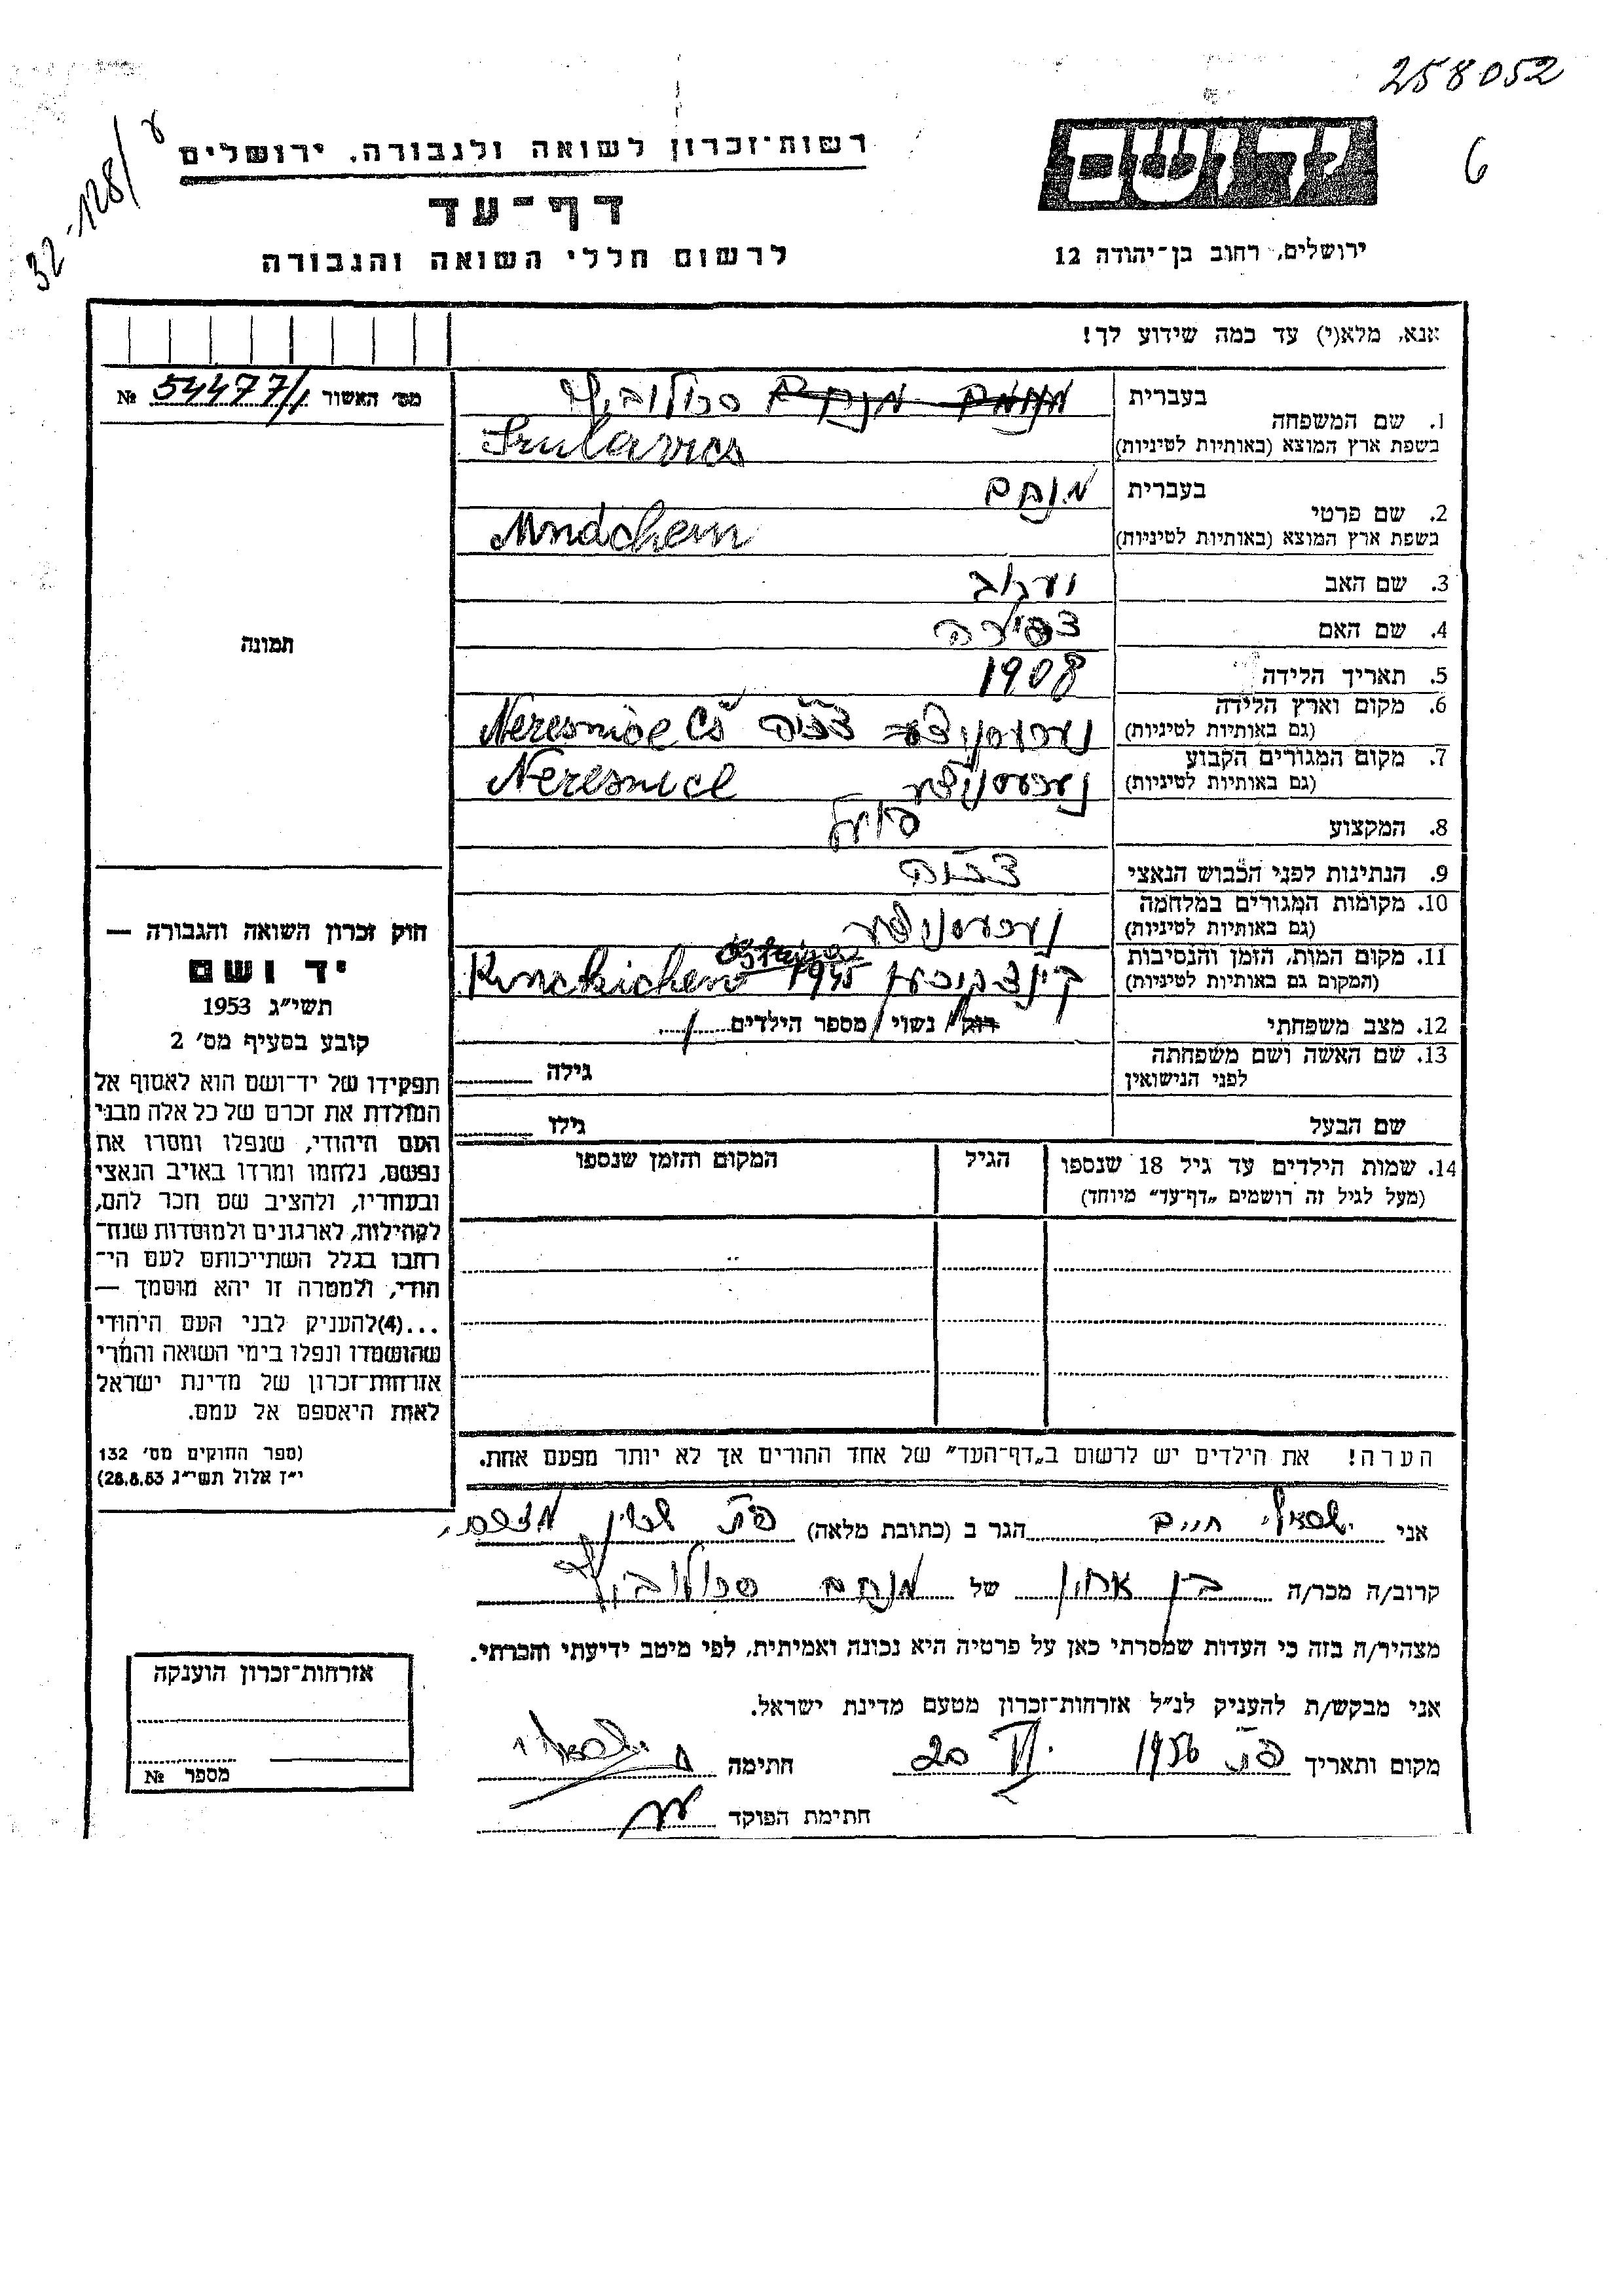 258052
6
32-128/ע
יד ושם
רשות־זכרון לשואה ולגבורה, ירושלים
דף־עד
לרשום חללי השואה והגבורה
ירושלים, רחוב בן־יהודה 12
אנא, מלא(י) עד כמה שידוע לך!
מס׳ האשור 54477/1 №
1. שם המשפחה
בעברית סרולוביץ
בשפת ארץ המוצא (באותיות לטיניות)
2. שם פרטי
בעברית מנחם
בשפת ארץ המוצא (באותיות לטיניות)
3. שם האב יעקוב
4. שם האם צפירה
5. תאריך הלידה 1908
6. מקום וארץ הלידה נערעסניצע צ׳כיה Neresnice Čs
(גם באותיות לטיניות)
7. מקום המגורים הקבוע נערעסניצע Neresnice
(גם באותיות לטיניות)
8. המקצוע פועל
9. הנתינות לפני הכבוש הנאצי צ׳כיה
10. מקומות המגורים במלחמה נערעסניצע
(גם באותיות לטיניות)
11. מקום המות, הזמן והנסיבות 1945
(המקום גם באותיות לטיניות)
12. מצב משפחתי רוק/ נשוי/ מספר הילדים
13. שם האשה ושם משפחתה
לפני הנישואין גילה
שם הבעל גילו
14. שמות הילדים עד גיל 18 שנספו הגיל המקום והזמן שנספו
(מעל לגיל זה רושמים „דף־עד״ מיוחד)
הערה! את הילדים יש לרשום ב„דף־העד״ של אחד ההורים אך לא יותר מפעם אחת.
תמונה
חוק זכרון השואה והגבורה —
יד ושם
תשי״ג 1953
קובע בסעיף מס׳ 2
תפקידו של יד־ושם הוא לאסוף אל
המולדת את זכרם של כל אלה מבני
העם היהודי, שנפלו ומסרו את
נפשם, נלחמו ומרדו באויב הנאצי
ובעוזריו, ולהציב שם וזכר להם,
לקהילות, לארגונים ולמוסדות שנח־
רבו בגלל השתייכותם לעם הי־
הודי, ולמטרה זו יהא מוסמך —
...(4)להעניק לבני העם היהודי
שהושמדו ונפלו בימי השואה והמרי
אזרחות־זכרון של מדינת ישראל
לאות היאספם אל עמם.
(ספר החוקים מס׳ 132
י״ז אלול תשי״ג 28.8.53)
אני ישראלי חיים הגר ב (כתובת מלאה)
קרוב/ה מכר/ה בן אחין של מנחם סרולוביץ
מצהיר/ה בזה כי העדות שמסרתי כאן על פרטיה היא נכונה ואמיתית, לפי מיטב ידיעתי והכרתי.
אני מבקש/ת להעניק לנ״ל אזרחות־זכרון מטעם מדינת ישראל.
מקום ותאריך 1956 VI 20 חתימה ח ישראלי
חתימת הפוקד
אזרחות־זכרון הוענקה
מספר №